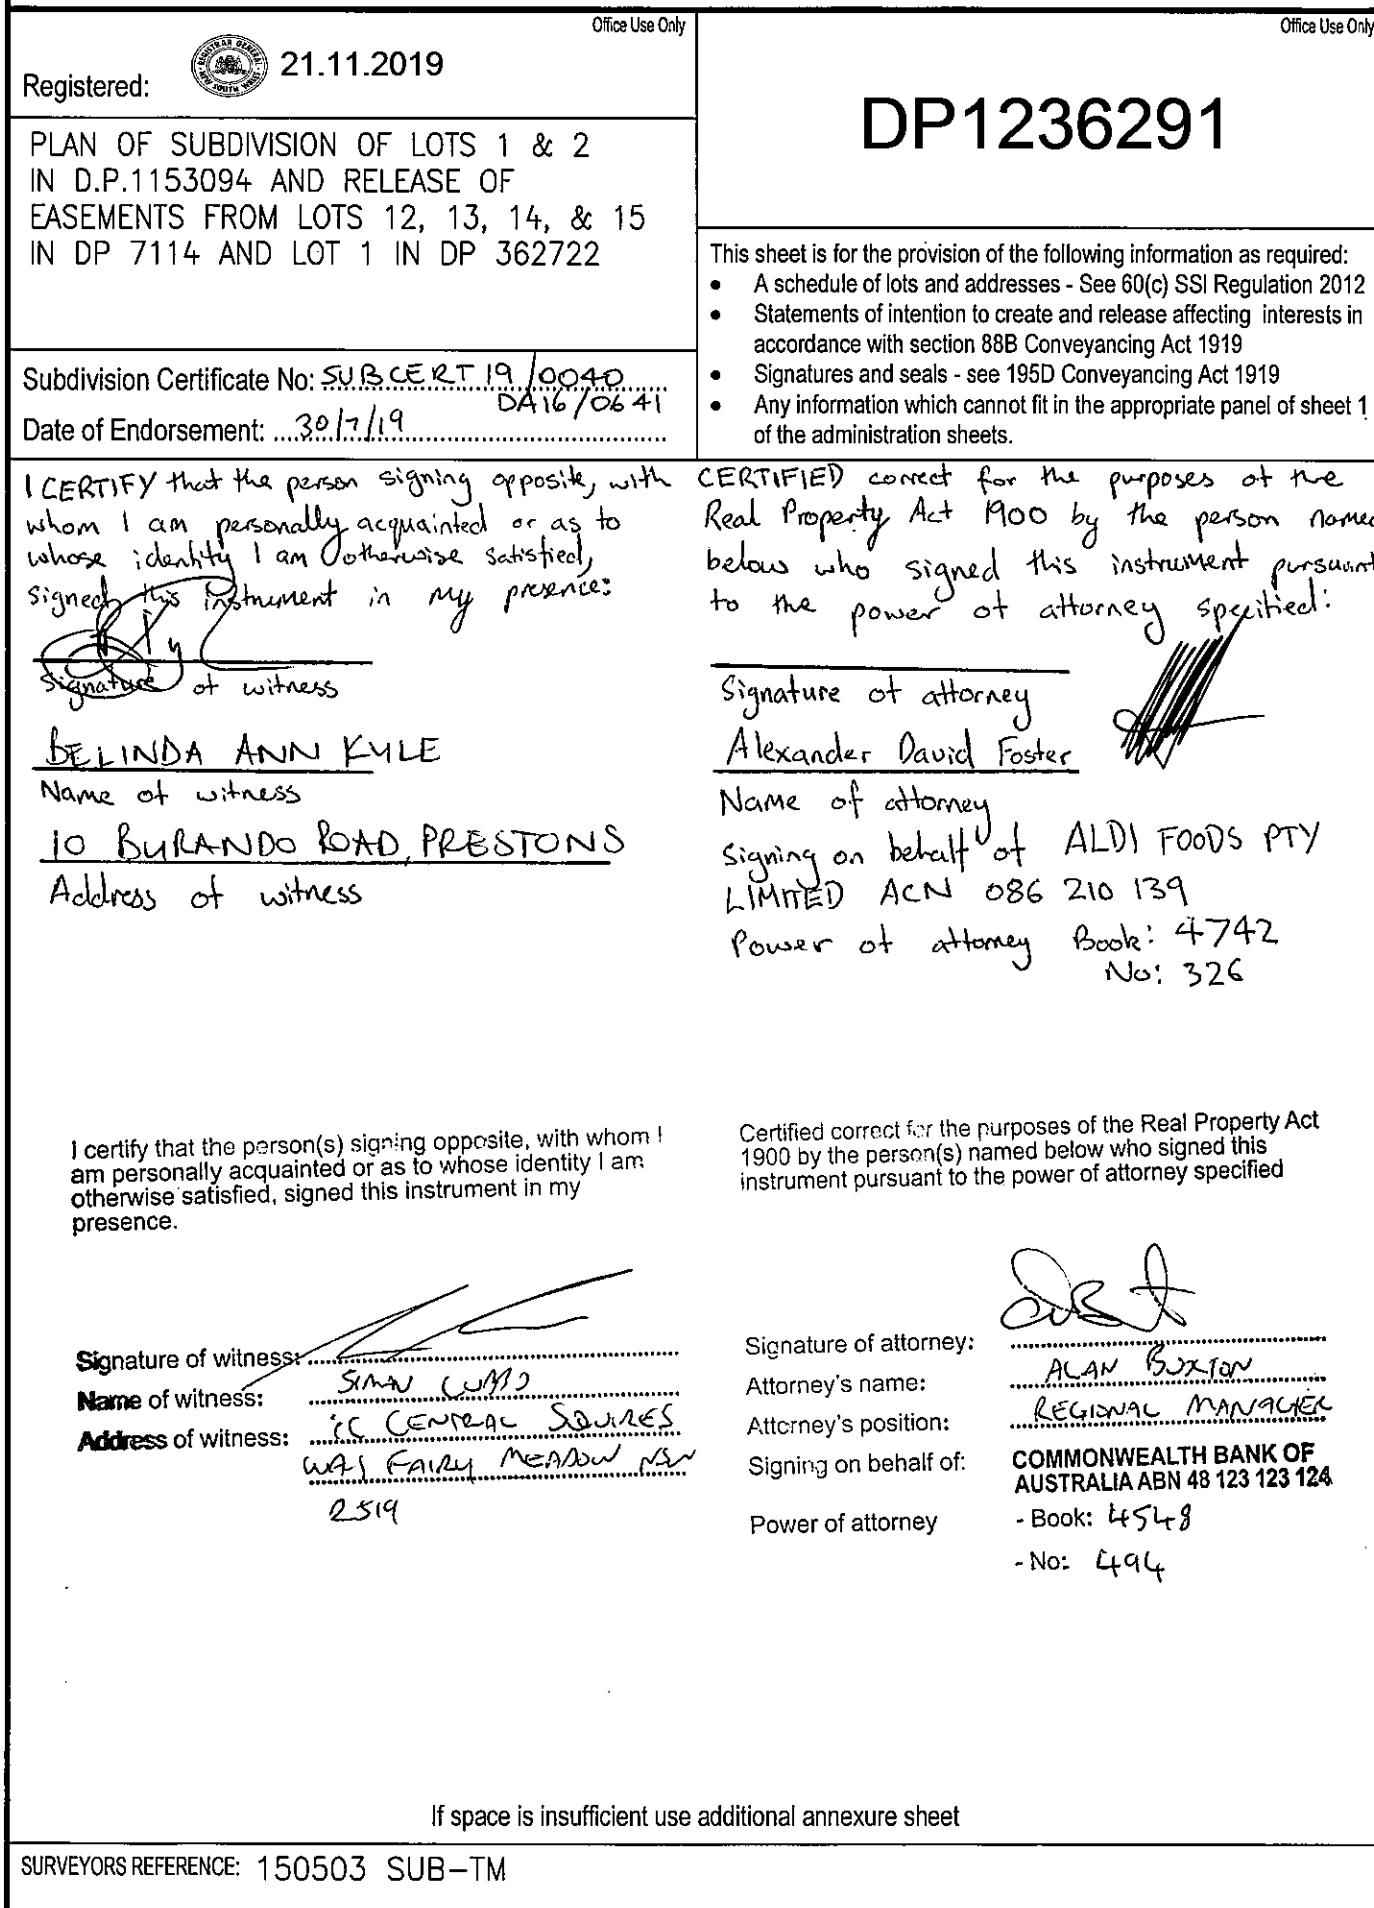 Office Use Only
Registered:
REGISTRAR GENERAL
NEW SOUTH WALES
21.11.2019
PLAN OF SUBDIVISION OF LOTS 1 & 2
IN D.P.1153094 AND RELEASE OF
EASEMENTS FROM LOTS 12, 13, 14, & 15
IN DP 7114 AND LOT 1 IN DP 362722
Subdivision Certificate No: SUBCERT 19/0040
DA16/0641
Date of Endorsement: 30/7/19
Office Use Only
DP1236291
This sheet is for the provision of the following information as required:
• A schedule of lots and addresses - See 60(c) SSI Regulation 2012
• Statements of intention to create and release affecting interests in
accordance with section 88B Conveyancing Act 1919
• Signatures and seals - see 195D Conveyancing Act 1919
• Any information which cannot fit in the appropriate panel of sheet 1
of the administration sheets.
I CERTIFY that the person signing opposite, with
whom I am personally acquainted or as to
whose identity I am otherwise satisfied,
signed this instrument in my presence:
Signature of witness
BELINDA ANN KYLE
Name of witness
10 BURANDO ROAD, PRESTONS
Address of witness
CERTIFIED correct for the purposes of the
Real Property Act 1900 by the person named
below who signed this instrument pursuant
to the power of attorney specified:
Signature of attorney
Alexander David Foster
Name of attorney
Signing on behalf of ALDI FOODS PTY
LIMITED ACN 086 210 139
Power of attorney Book: 4742
No: 326
I certify that the person(s) signing opposite, with whom I
am personally acquainted or as to whose identity I am
otherwise satisfied, signed this instrument in my
presence.
Signature of witness:
Name of witness:
Address of witness: CENTRAL SQUIRES
WAY FAIRY MEADOW NSW
2519
Certified correct for the purposes of the Real Property Act
1900 by the person(s) named below who signed this
instrument pursuant to the power of attorney specified
Signature of attorney:
Attorney's name: ALAN BUXTON
Attorney's position: REGIONAL MANAGER
Signing on behalf of: COMMONWEALTH BANK OF
AUSTRALIA ABN 48 123 123 124
Power of attorney - Book: 4548
- No: 494
If space is insufficient use additional annexure sheet
SURVEYORS REFERENCE: 150503 SUB-TM